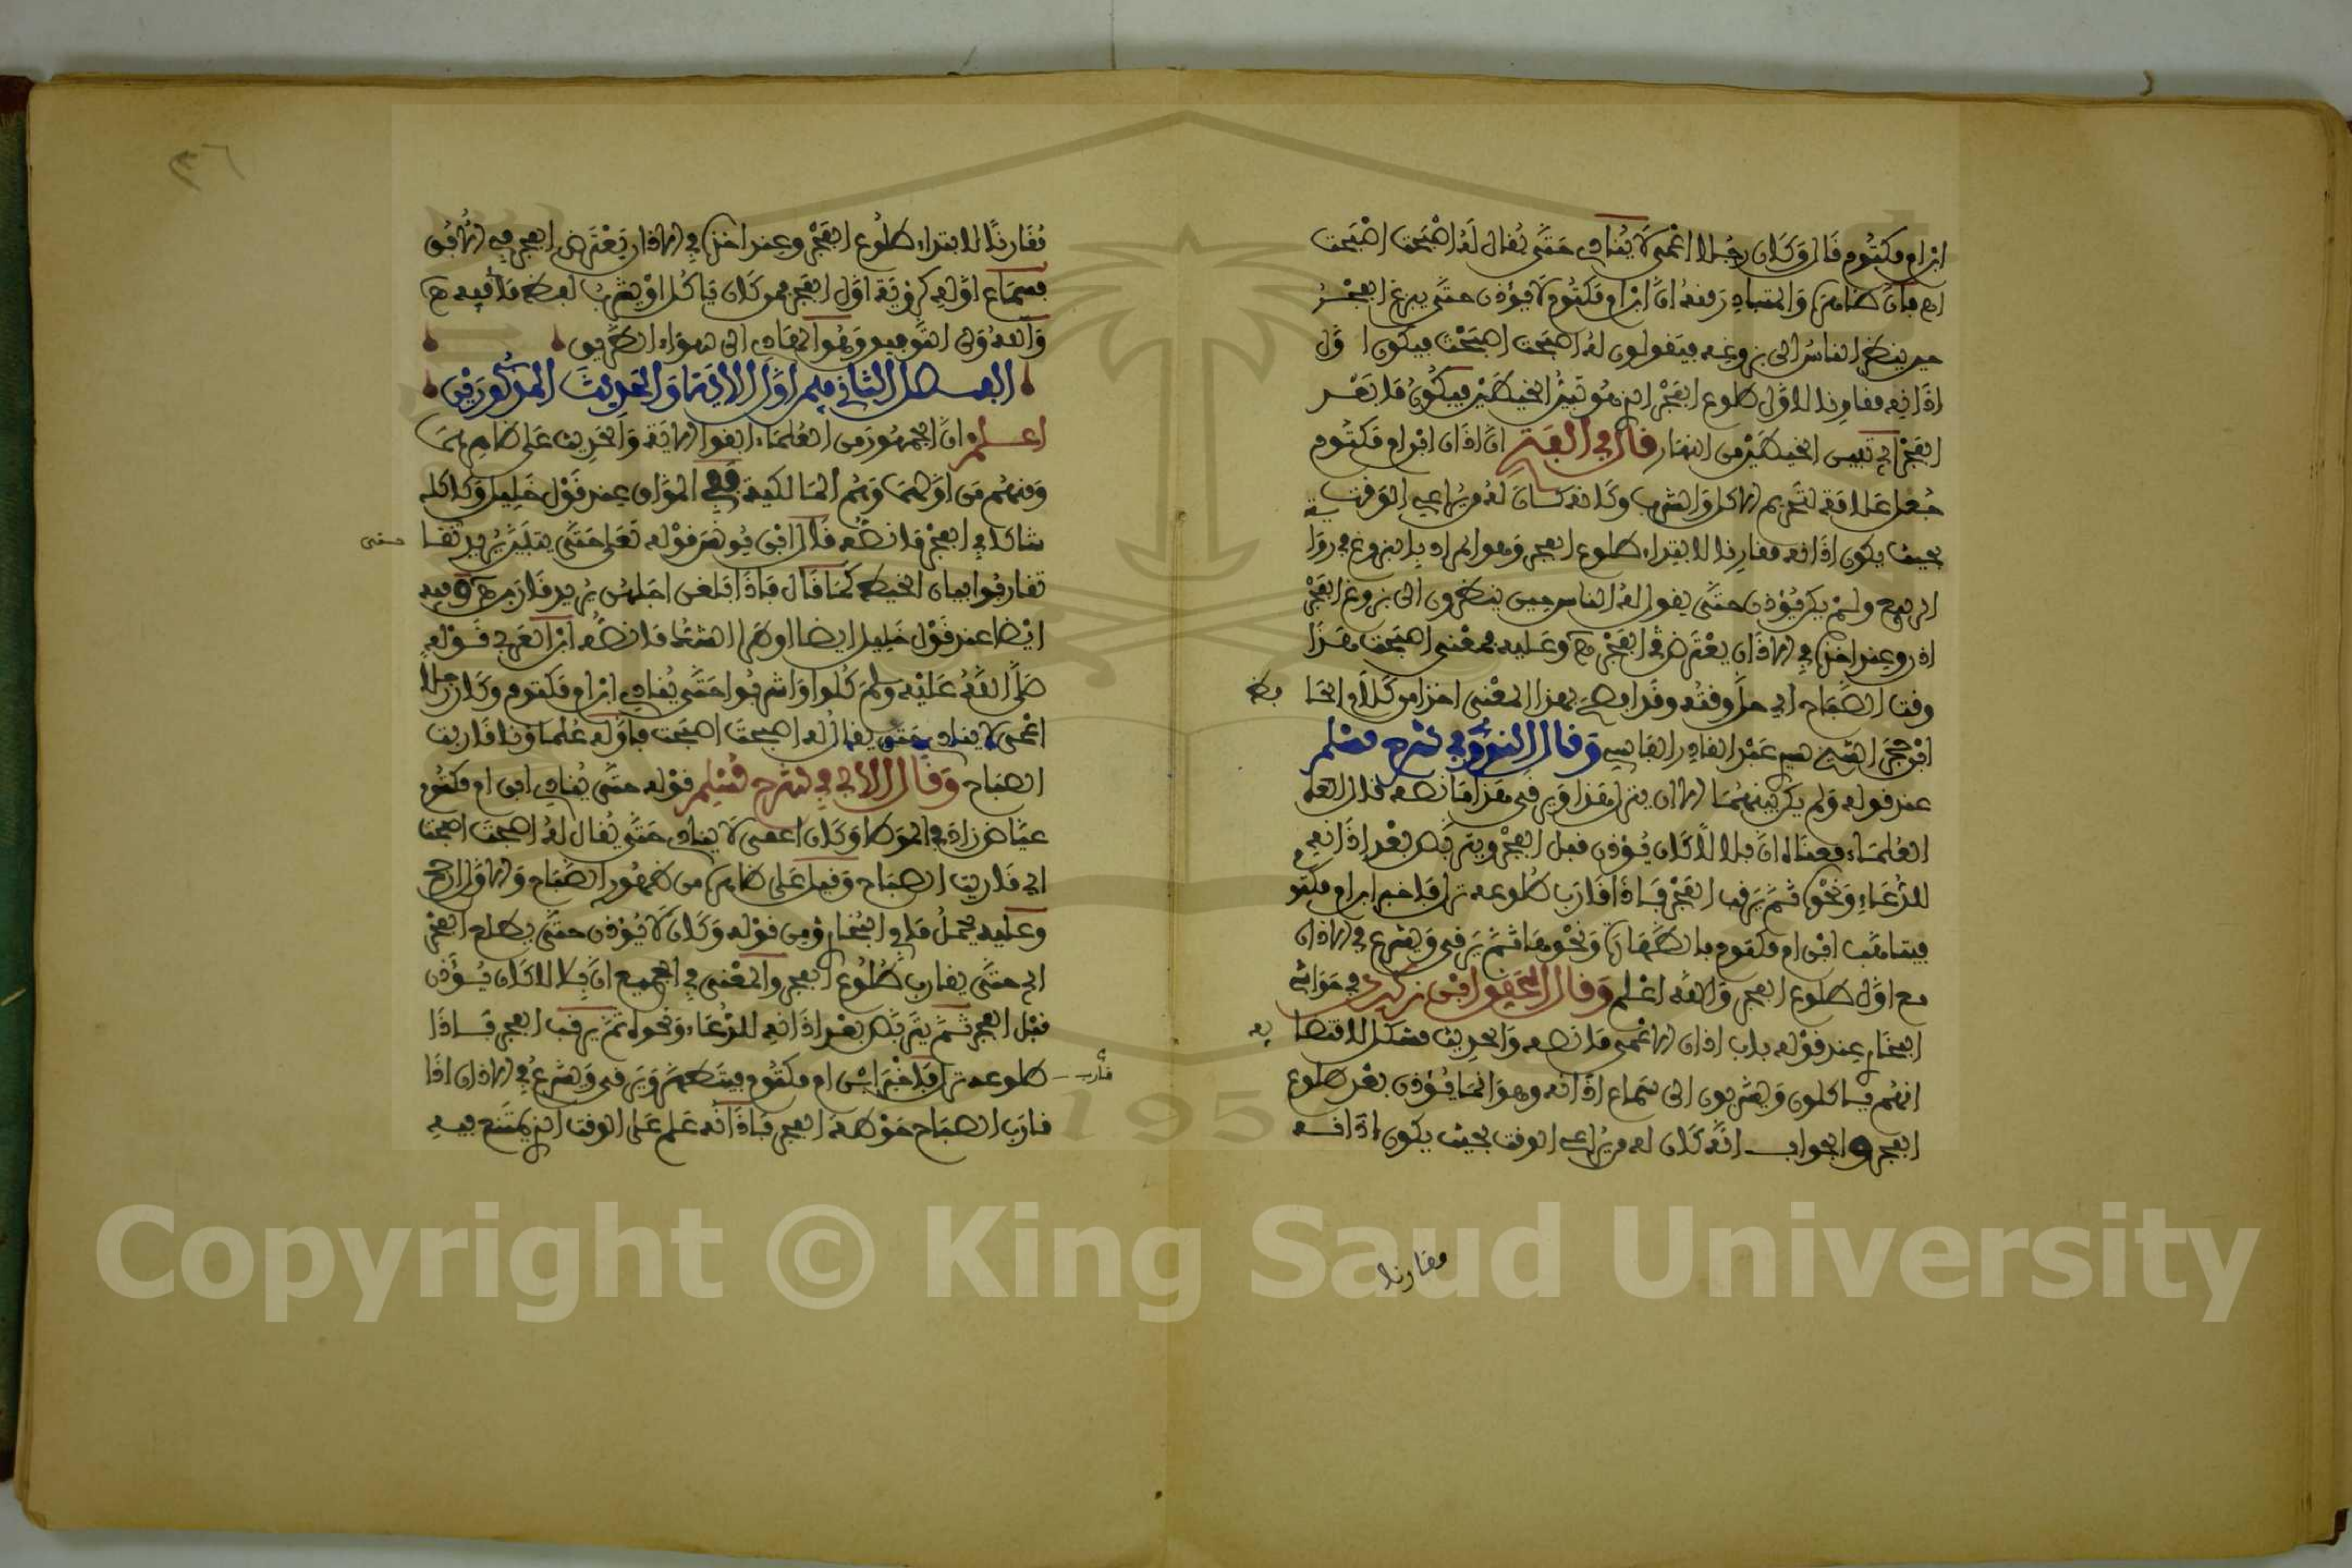 ابن ام مكتوم قال وكان رجلا اعمى لا ينادي حتى يقال له اصبحت اصبحت
اه فان ظاهره والمتبادر منه ان ابن ام مكتوم لا يؤذن حتى يبزغ الفجر
حين ينظر الناس الى بزوغه فيقولون له اصبحت اصبحت فيكون اول
اذانه مقارنا لاول طلوع الفجر الذي هو تبين الخيطين فيكون ما بعد
الفجر اي تبين الخيطين من النهار قال في الفتح ان اذان ابن ام مكتوم
جعل علامة لتحريم الاكل والشرب وكانه كان له من يراعي الوقت
بحيث يكون اذانه مقارنا لابتداء طلوع الفجر وهو المراد بالبزوغ في رواية
الربيع ولم يكن يؤذن حتى يقول له الناس حين ينظرون الى بزوغ الفجر
اذن وعند اخذه في الاذان يعترض الفجر اه وعليه فمعنى اصبحت هذا
وقت الصباح اي حل وقته وقد افصح بهذا المعنى اخذا من كلام الحافظ
ابن حجر الشيخ سيدي عبد القادر الفاسي وقال النووي في شرح مسلم
عند قوله ولم يكن بينهما الا ان ينزل هذا ويرقى هذا ما نصه قال
العلماء معناه ان بلالا كان يؤذن قبل الفجر ويتربص بعد اذانه
للدعاء ونحوه ثم يرقب الفجر فاذا قارب طلوعه نزل فاخبر ابن ام مكتوم
فيتاهب ابن ام مكتوم بالطهارة ونحوها ثم يرقى ويشرع في الاذان
مع اول طلوع الفجر والله اعلم وقال الحفيد ابن زكري في حواشي
البخاري عند قوله باب اذان الاعمى ما نصه والحديث مشكل لاقتضائه
انهم ياكلون ويشربون الى سماع اذانه وهو انما يؤذن بعد طلوع
الفجر والجواب انه كان له من يراعي الوقت بحيث يكون اذانه
مقارنا
٣٦
مقارنا لابتداء طلوع الفجر وعند اخذه في الاذان يعترض الفجر في الافق
فسماع اوله كرؤية اول الفجر فمن كان ياكل او يشرب لفظ ما في فيه اه
والله ولي التوفيق وهو الهادي الى سواء الطريق
الفصل الثاني فيمن اول الاية والحديث المذكورين
اعلم ان الجمهور من العلماء ابقوا الاية والحديث على ظاهرهما
ومنهم من اولهما وهم المالكية ففي المواق عند قول خليل وكاكله
شاكا في الفجر ما نصه قال ابن يونس قوله تعالى حتى يتبين يريد حتى
تقاربوا بيان الخيط كما قال فاذا بلغن اجلهن يريد قاربن اه وفيه
ايضا عند قول خليل ايضا او طرا الشك ما نصه ابن العربي قوله
صلى الله عليه وسلم كلوا واشربوا حتى ينادي ابن ام مكتوم وكان رجلا
اعمى لا ينادي حتى يقال له اصبحت اصبحت تاوله علماؤنا قاربت
الصباح وقال الابي في شرح مسلم قوله حتى ينادي ابن ام مكتوم
عياض زاد في الموطا وكان اعمى لا ينادي حتى يقال له اصبحت اصبحت
اي قاربت الصباح وقيل على ظاهره من ظهور الصباح والاول ارجح
وعليه يحمل ما في البخاري من قوله وكان لا يؤذن حتى يطلع الفجر
اي حتى يقارب طلوع الفجر والمعنى في الجميع ان بلالا كان يؤذن
قبل الفجر ثم يتربص بعد اذانه للدعاء ونحوه ثم يرقب الفجر فاذا
قارب طلوعه نزل فاخبر ابن ام مكتوم فيتطهر ويرقى ويشرع في الاذان اذا
قارب الصباح حوطة الفجر فاذانه علم على الوقت الذي يمتنع فيه